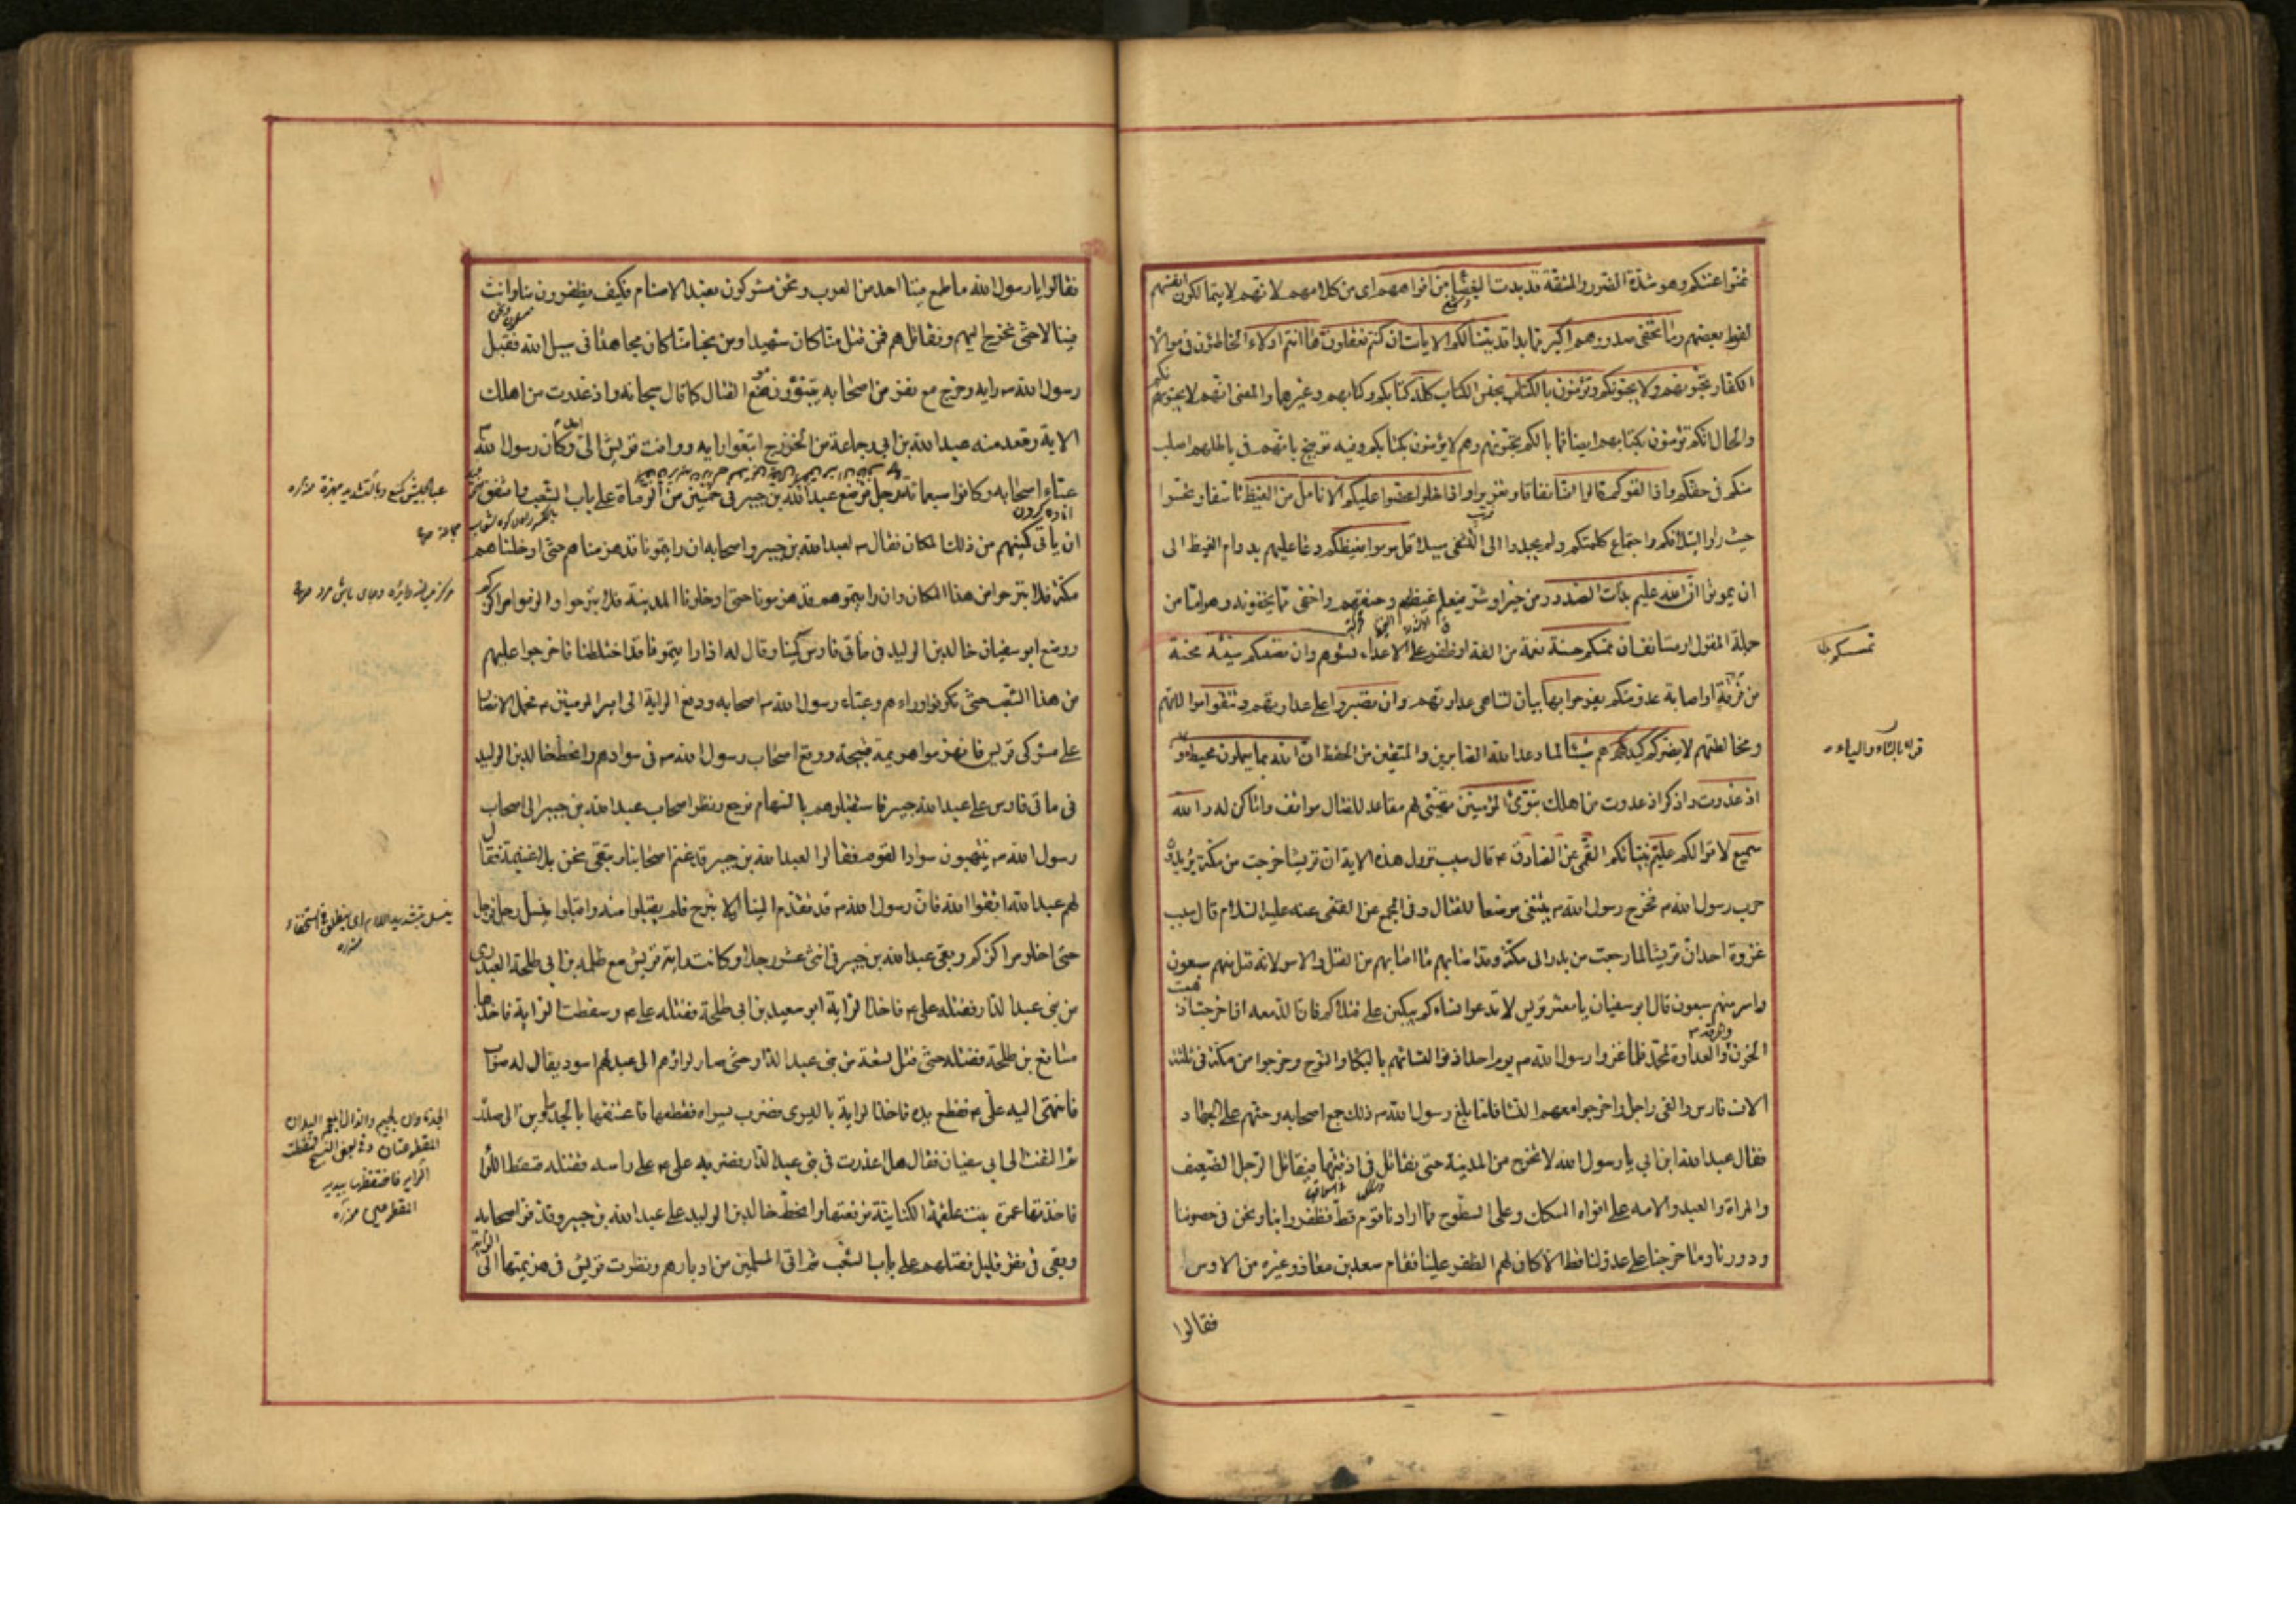 تمنوا عنتكم وهو شدة الضرر والمشقة قد بدت البغضاء من افواههم اى من كلامهم لانهم لا يتمالكون انفسهم
لفرط بغضهم وما تخفى صدورهم اكبر مما بدا قد بينا لكم الايات ان كنتم تعقلون ها انتم اولاء الخاطئون فى موالاة
الكفار تحبونهم ولا يحبونكم وتؤمنون بالكتاب بجنس الكتاب كله كتابكم وكتابهم وغيرهما والمعنى انهم لا يحبونكم
والحال انكم تؤمنون بكتابهم ايضا فما بالكم تحبونهم وهم لا يؤمنون بكتابكم وفيه توبيخ بانهم فى باطلهم اصلب
منكم فى حقكم واذا لقوكم قالوا امنا نفاقا وتغريرا واذا خلوا عضوا عليكم الانامل من الغيظ تاسفا وتحسرا
حيث راوا ايتلافكم واجتماع كلمتكم ولم يجدوا الى التشفى سبيلا قل موتوا بغيظكم دعا عليهم بدوام الغيظ الى
ان يموتوا ان الله عليم بذات الصدور من خير او شر فيعلم غيظهم وحنقهم واخفى مما يخفونه وهو اما من
جملة المقول او مستانف ان تمسسكم حسنة نعمة من الفة او ظفر على الاعداء تسؤهم وان تصبكم سيئة محنة
من فرقة او اصابة عدو منكم يفرحوا بها بيان لتناهى عداوتهم وان تصبروا على عداوتهم وتتقوا موالاتهم
ومخالطتهم لا يضركم كيدهم شيئا لما وعد الله الصابرين والمتقين من الحفظ ان الله بما يعملون محيط و
اذ غدوت واذكر اذ غدوت من اهلك تبوئ المؤمنين تهيئى لهم مقاعد للقتال مواقف واماكن له والله
سميع لاقوالكم عليم بنياتكم القمى عن الصادق ع قال سبب نزول هذه الاية ان قريشا خرجت من مكة يريدون
حرب رسول الله ص فخرج رسول الله ص يبتغى موضعا للقتال وفى المجمع عن القمى عنه عليه السلام قال سبب
غزوة احد ان قريشا لما رجعت من بدر الى مكة وقد اصابهم ما اصابهم من القتل والاسر لانه قتل منهم سبعون
واسر منهم سبعون قال ابو سفيان يا معشر قريش لا تدعوا نساءكم يبكين على قتلاكم فان الدمعة اذا خرجت اذهبت
الحزن والعداوة لمحمد فلما غزوا رسول الله ص يوم احد اذنوا لنسائهم بالبكاء والنوح وخرجوا من مكة فى ثلثة
الاف فارس والفى راجل واخرجوا معهم النسا فلما بلغ رسول الله ص ذلك جمع اصحابه وحثهم على الجهاد
فقال عبد الله ابن ابي يا رسول الله لا تخرج من المدينة حتى نقاتل فى ازقتها فيقاتل الرجل الضعيف
والمراة والعبد والامه على افواه السكك وعلى السطوح فما ارادنا قوم قط فظفروا بنا ونحن فى حصوننا
ودورنا وما خرجنا على عدو لنا قط الا كان لهم الظفر علينا فقام سعد بن معاذ وغيره من الاوس
فقالوا
قرئ بالتاء والياء
فقالوا يا رسول الله ما طمع فينا احد من العرب ونحن مشركون نعبد الاصنام فكيف يظفرون بنا وانت
فينا لا حتى نخرج اليهم ونقاتلهم فمن قتل منا كان شهيدا ومن نجا منا كان مجاهدا فى سبيل الله فقبل
رسول الله ص رايه وخرج مع نفر من اصحابه يتبوؤن موضع القتال كما قال سبحانه واذ غدوت من اهلك
الاية وقعد عنه عبد الله بن ابي وجماعة من الخزرج اتبعوا رايه ووافت قريش الى احد وكان رسول الله
عباء اصحابه وكانوا سبعمائة رجل فوضع عبد الله بن جبير فى خمسين من الرماة على باب الشعب واشفق
ان ياتى كمينهم من ذلك المكان فقال ص لعبد الله بن جبير واصحابه ان رايتمونا قد هزمناهم حتى ادخلناهم
مكة فلا تبرحوا من هذا المكان وان رايتموهم قد هزمونا حتى ادخلونا المدينة فلا تبرحوا والزموا مراكزكم
ووضع ابو سفيان خالد بن الوليد فى مأتى فارس كمينا وقال له اذا رايتمونا قد اختلطنا فاخرجوا عليهم
من هذا الشعب حتى تكونوا وراءهم وعباء رسول الله ص اصحابه ودفع الراية الى امير المؤمنين ع فحمل الانصار
على مشركى قريش فانهزموا هزيمة قبيحة ووقع اصحاب رسول الله ص فى سوادهم وانحط خالد بن الوليد
فى مأتى فارس على عبد الله جبير فاستقبلوهم بالسهام فرجع ونظر اصحاب عبد الله بن جبير الى اصحاب
رسول الله ص ينتهبون سواد القوم فقالوا لعبد الله بن جبير قد غنم اصحابنا ونبقى نحن بلا غنيمة فقال
لهم عبد الله اتقوا الله فان رسول الله ص قد تقدم الينا ان لا نبرح فلم يقبلوا منه واقبلوا ينسل رجل فرجل
حتى اخلوا مراكزكم وبقى عبد الله بن جبير فى اثنى عشر رجلا وكانت راية قريش مع طلحة بن ابي طلحة العبدرى
من بنى عبد الدار فقتله على ع فاخذ الراية ابو سعيد بن ابي طلحة فقتله على ع وسقطت الراية فاخذها
مسافع بن طلحة فقتله حتى قتل تسعة من بنى عبد الدار حتى صار لواؤهم الى عبد لهم اسود يقال له صواب
فانتهى اليه على ع فقطع يده فاخذ الراية باليسرى فضرب يسراه فقطعها فاعتنقها بالجذماوين الى صدره
ثم التفت الى ابي سفيان فقال هل اعذرت فى بنى عبد الدار فضربه على ع على راسه فقتله فسقط اللوا
فاخذتها عمرة بنت علقمة الكنانية فرفعتها وانحط خالد بن الوليد على عبد الله بن جبير وقد فر اصحابه
وبقى فى نفر قليل فقتلهم على باب الشعب ثم اتى المسلمين من ادبارهم ونظرت قريش فى هزيمتها الى الراية